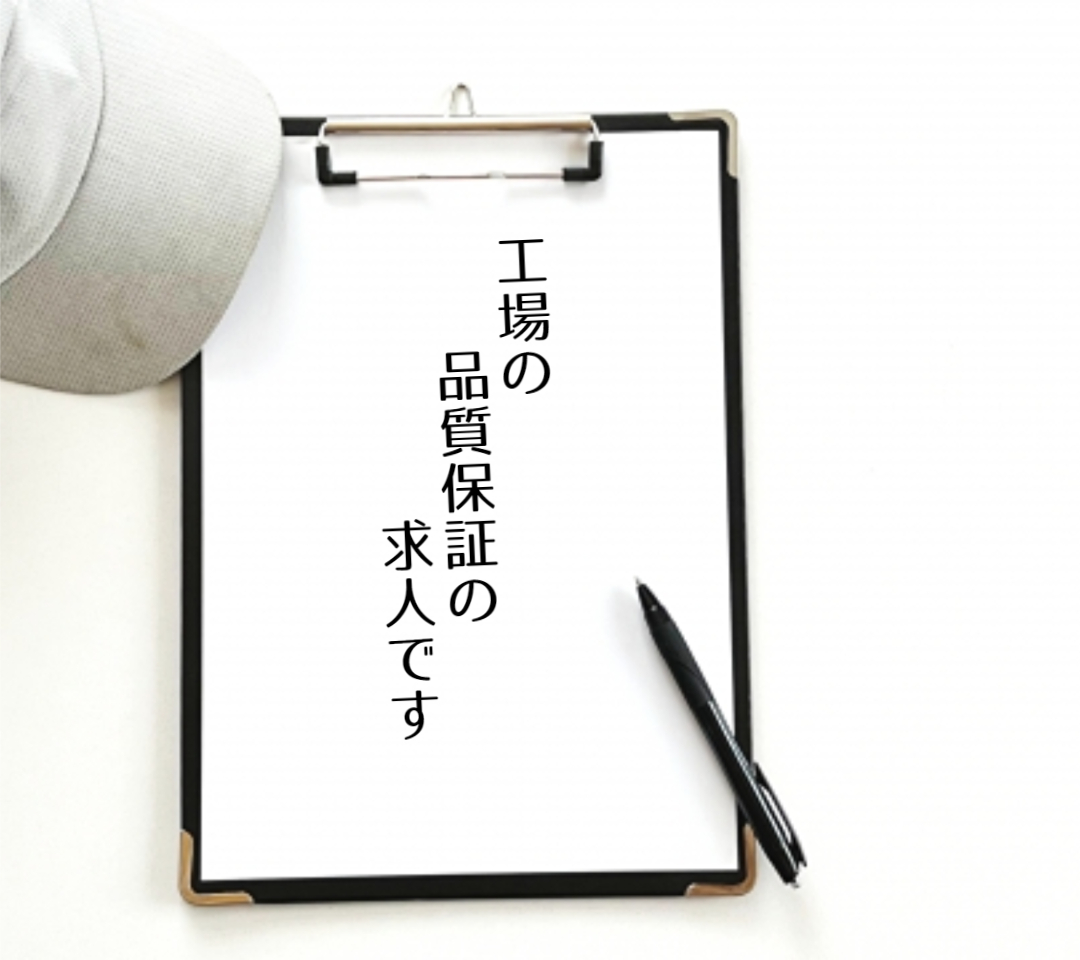 工場の
品質保証の
求人です